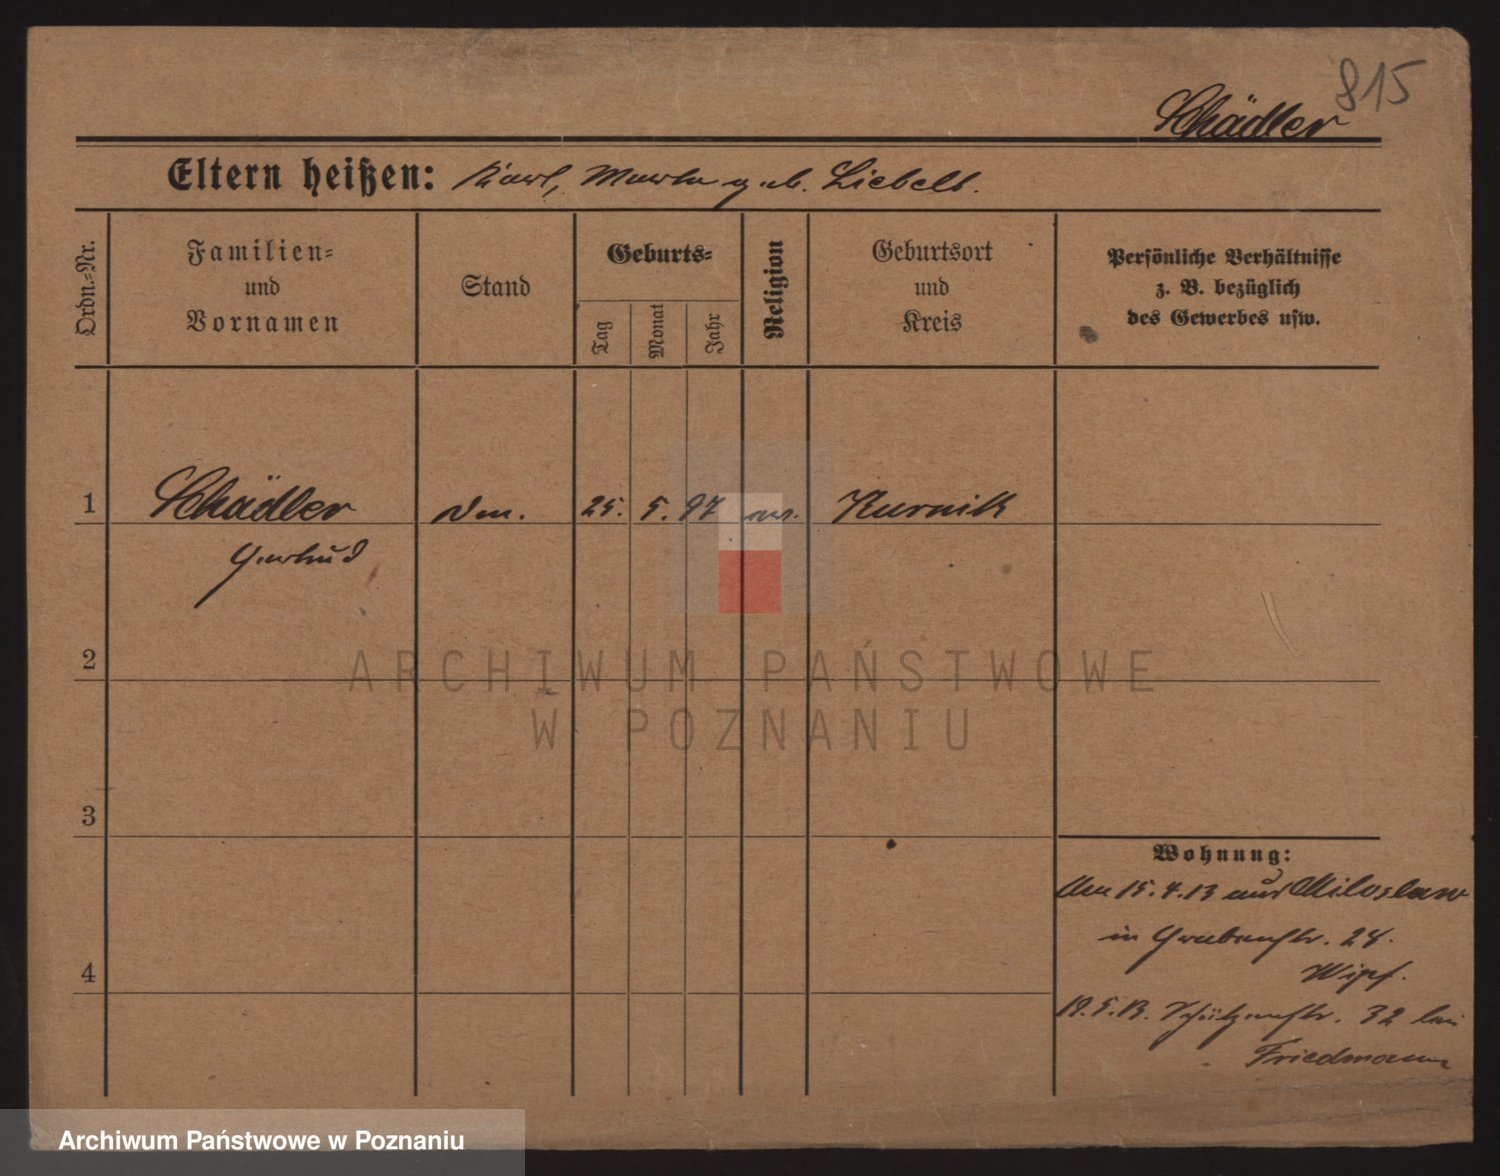 815
Schädler
Eltern heißen: Karl, Marta geb. Liebelt.
Ordn.-Nr.
Familien-
und
Vornamen
Stand
Geburts-
Tag
Monat
Jahr
Religion
Geburtsort
und
Kreis
Persönliche Verhältnisse
z. B. bezüglich
des Gewerbes usw.
1 Schädler 25. 5. 97 Kurnik
Gertrud
2
3
4
Wohnung:
Am 15.4.13 aus Miloslaw
in Grabenstr. 24.
19.5.13. Schützenstr. 32 bei
Friedmann
ARCHIWUM PAŃSTWOWE
W POZNANIU
Archiwum Państwowe w Poznaniu